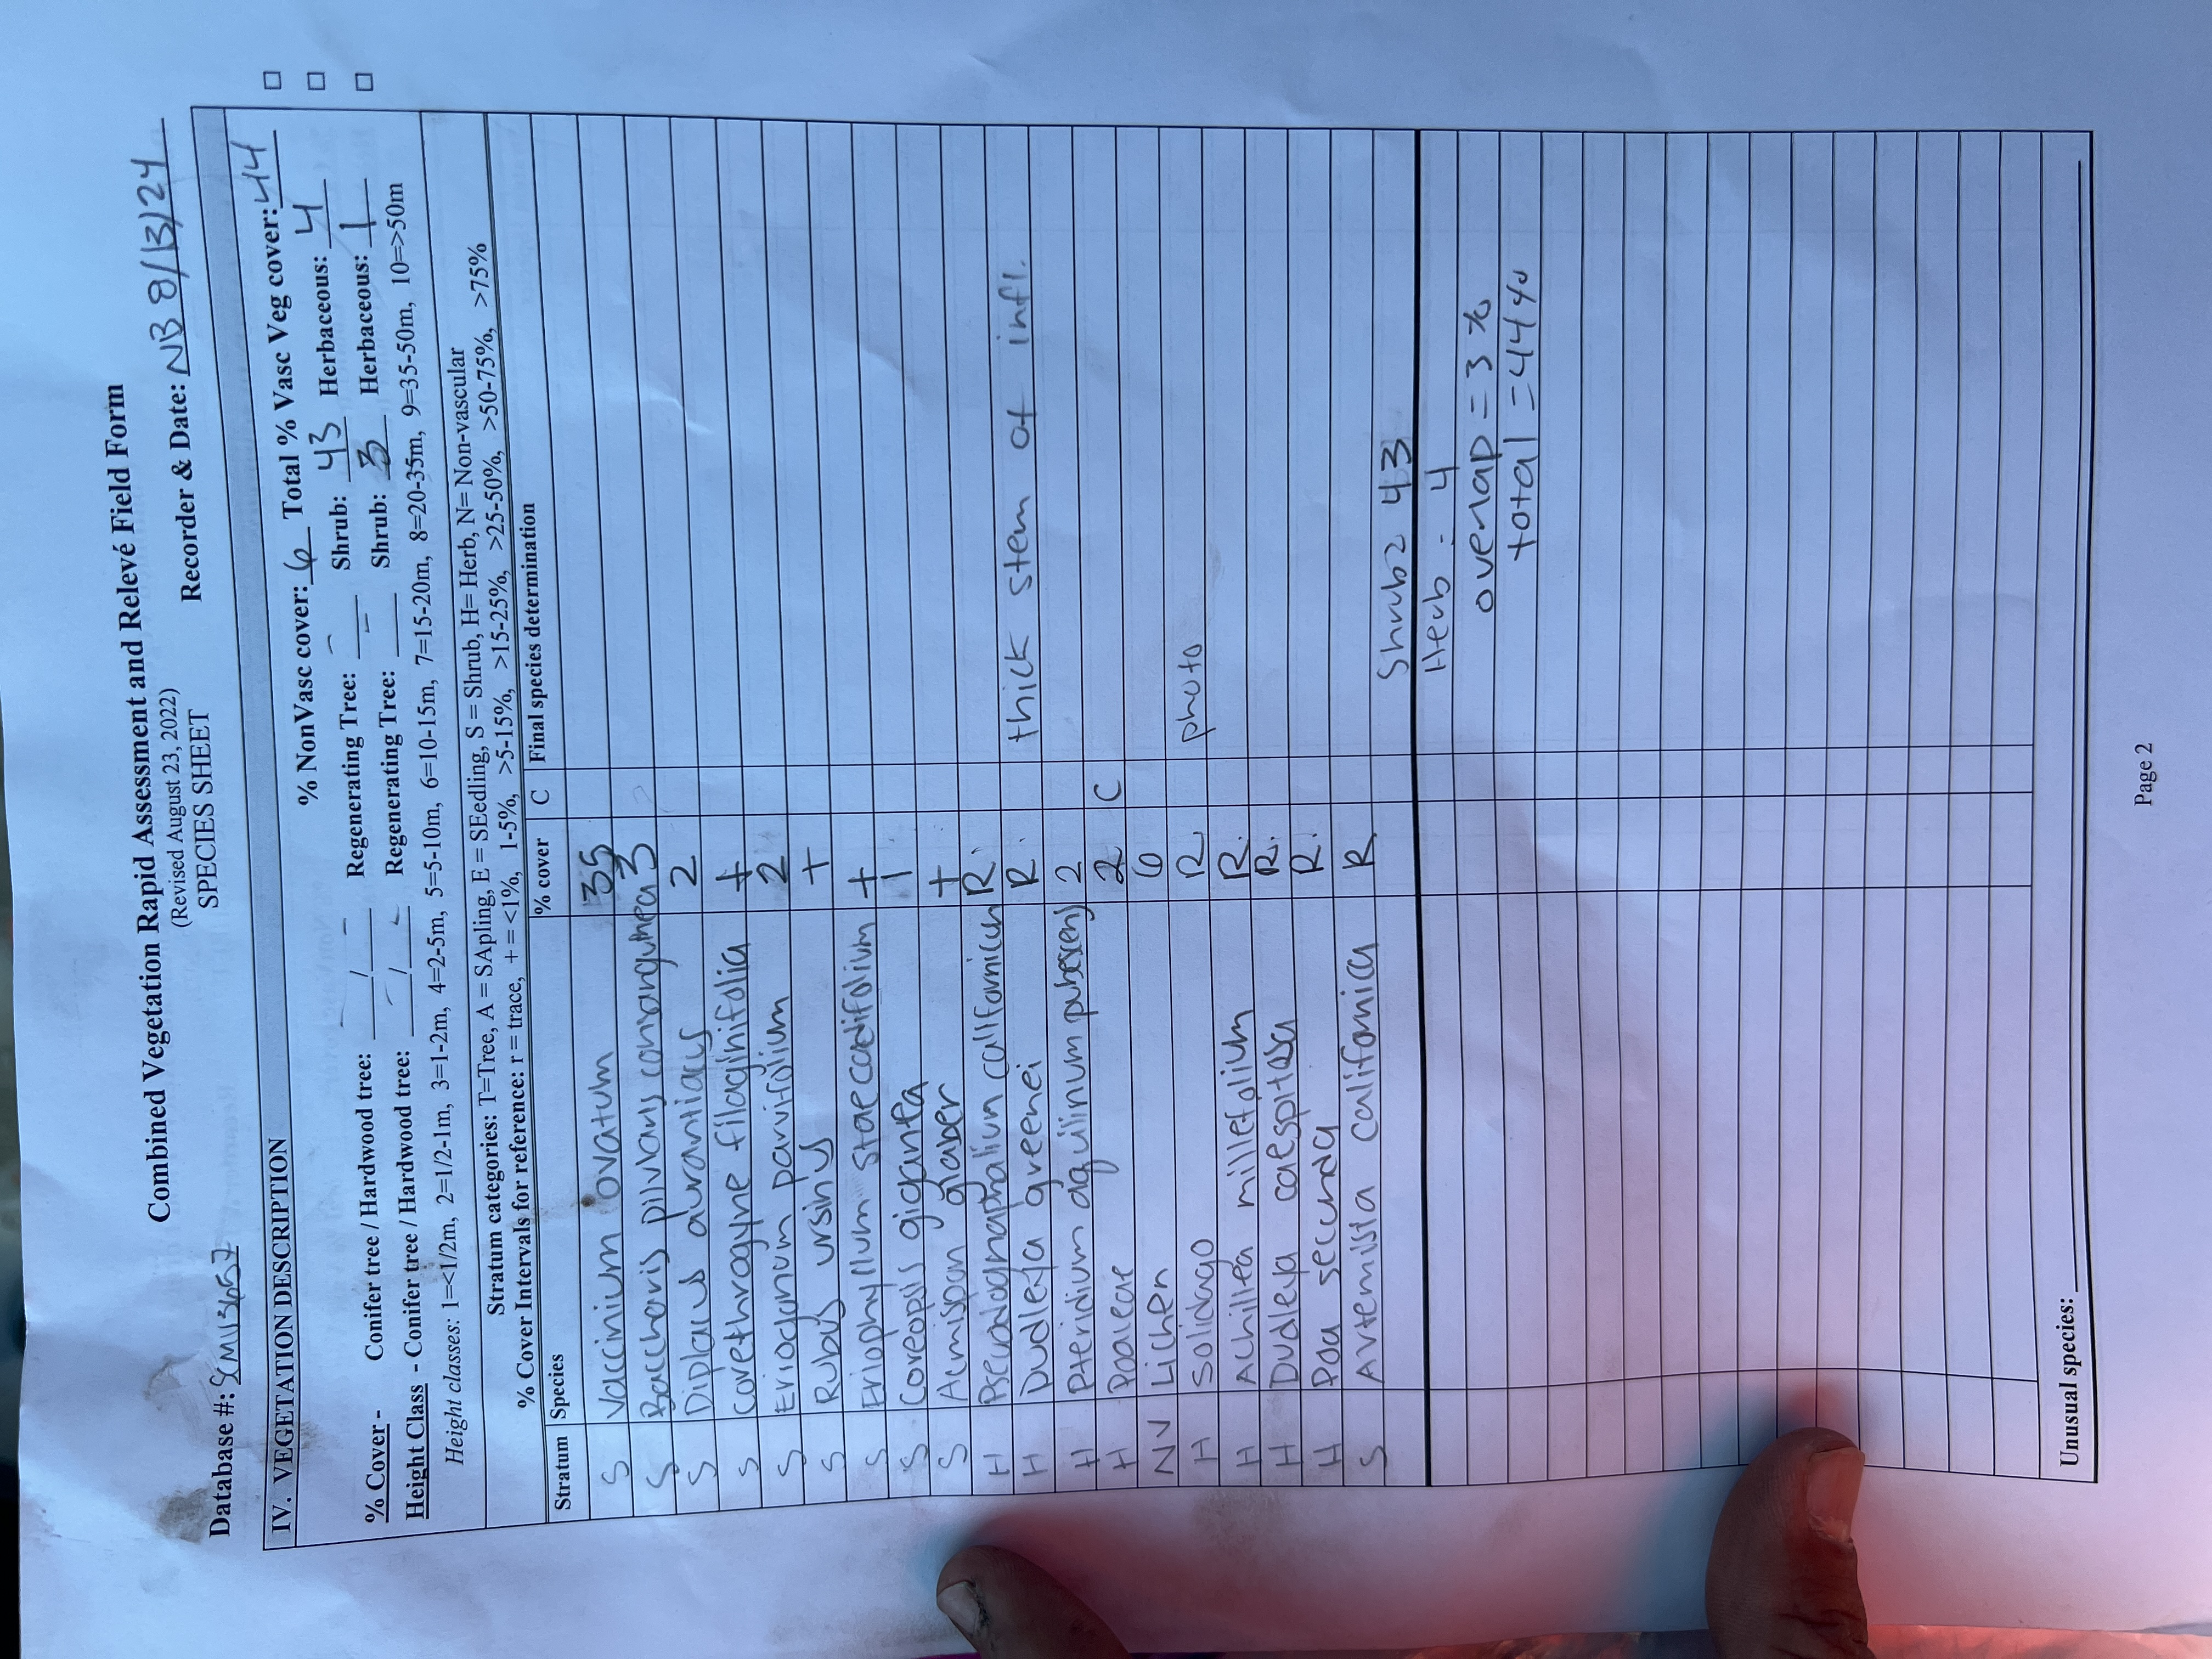 Combined Vegetation Rapid Assessment and Relevé Field Form
(Revised August 23, 2022)
SPECIES SHEET
Database #: SMU13657 Recorder & Date: NB 8/13/24
IV. VEGETATION DESCRIPTION
% NonVasc cover: 6 Total % Vasc Veg cover: 44
% Cover - Conifer tree / Hardwood tree: / Regenerating Tree: Shrub: 43 Herbaceous: 4
Height Class - Conifer tree / Hardwood tree: / Regenerating Tree: Shrub: 3 Herbaceous: 1
Height classes: 1=<1/2m, 2=1/2-1m, 3=1-2m, 4=2-5m, 5=5-10m, 6=10-15m, 7=15-20m, 8=20-35m, 9=35-50m, 10=>50m
Stratum categories: T=Tree, A = SApling, E = SEedling, S = Shrub, H= Herb, N= Non-vascular
% Cover Intervals for reference: r = trace, + = <1%, 1-5%, >5-15%, >15-25%, >25-50%, >50-75%, >75%
Stratum Species % cover C Final species determination
S Vaccinium ovatum 35
S Baccharis pilularis consanguinea 3
S Diplacus aurantiacus 2
S Corethrogyne filaginifolia +
S Eriogonum parvifolium 2
S Rubus ursinus +
S Eriophyllum staecadifolium +
S Coreopsis gigantea 1
S Acmispon glaber +
H Pseudognaphalium californicum R.
H Dudleya greenei R. thick stem of infl.
H Pteridium aquilinum pubescens 2
H Poaceae 2 C
NV Lichen 6
H Solidago R photo
H Achillea millefolium R.
H Dudleya caespitosa R.
H Poa secunda R.
S Artemisia californica R
Shrub = 43
Herb = 4
overlap = 3%
total = 44%
Unusual species:
Page 2